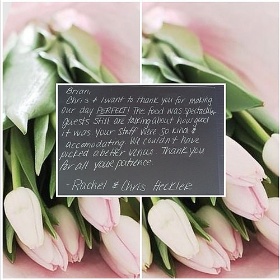 Brian,
Chris & I want to thank you for making
our day PERFECT! The food was spectacular
guests still are talking about how good
it was. Your staff were so kind &
accomodating. We couldn't have
picked a better venue. Thank you
for all your patience
- Rachel & Chris Heckler